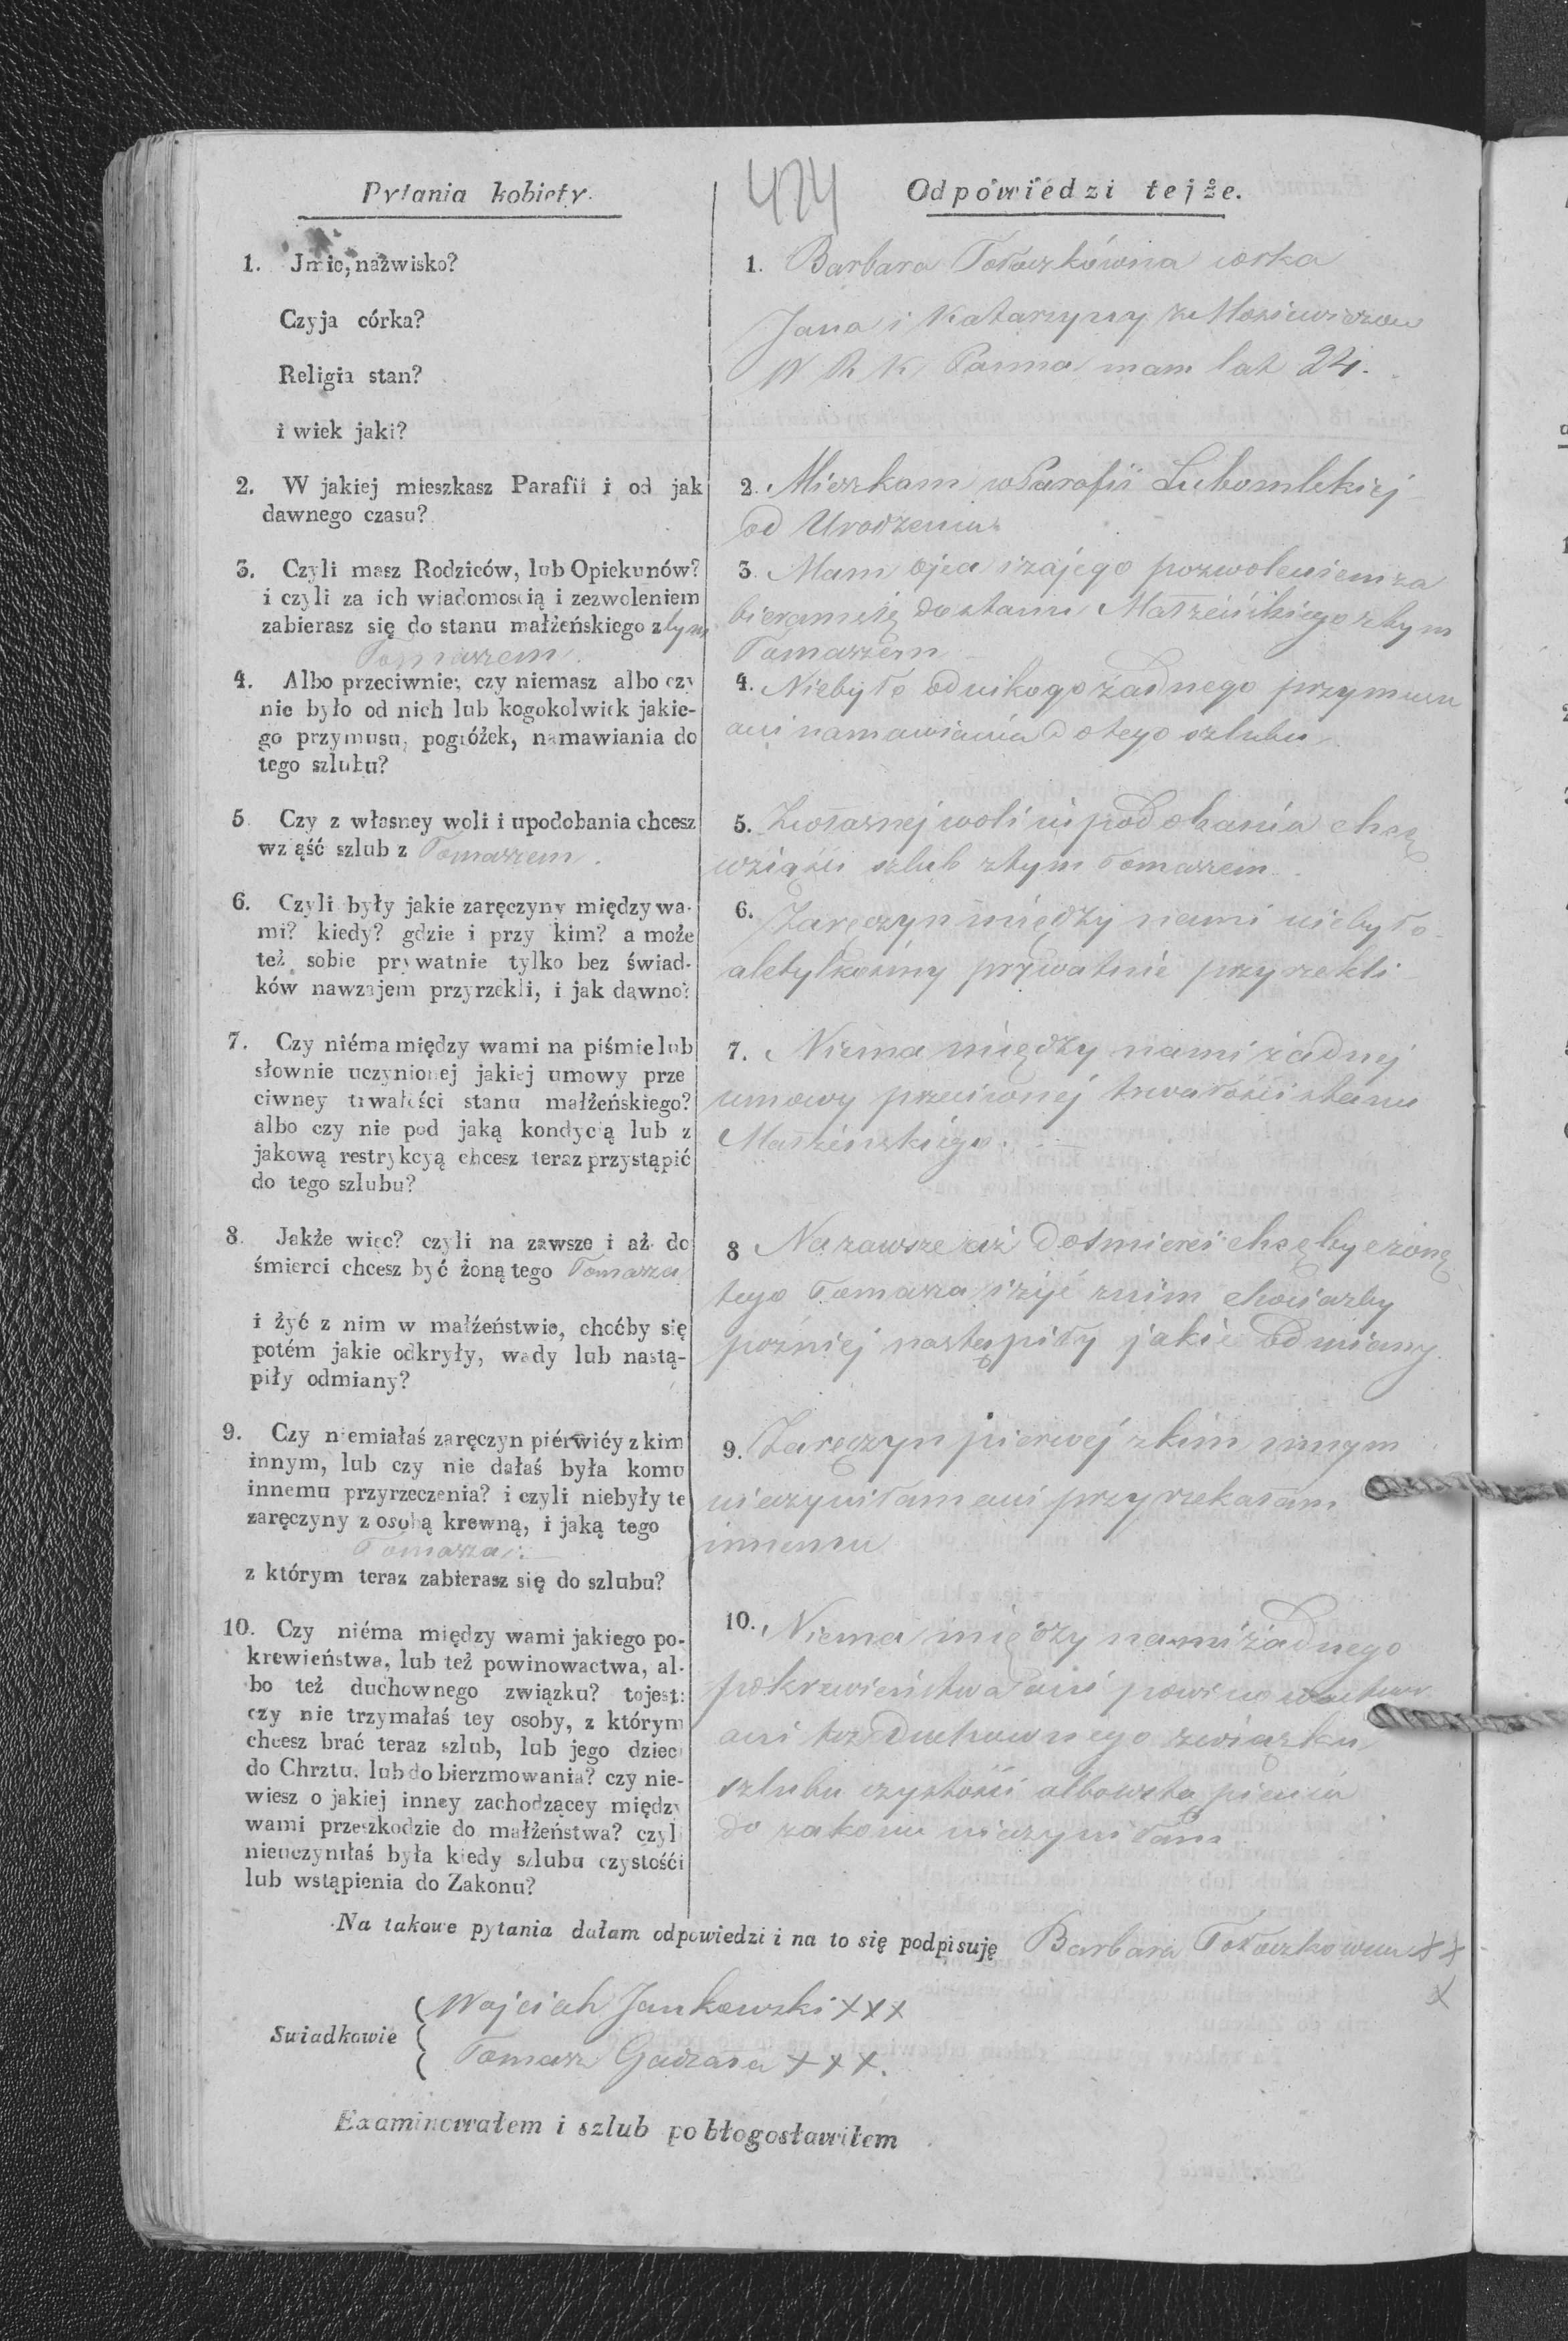 474
Pytania kobiety.
1. Jmie, nazwisko?
Czyja córka?
Religia stan?
i wiek jaki?
2. W jakiej mieszkasz Parafii i od jak
dawnego czasu?
3. Czyli masz Rodziców, lub Opiekunów?
i czyli za ich wiadomoscią i zezwoleniem
zabierasz się do stanu małżeńskiego z tym
Tomaszem.
4. Albo przeciwnie; czy niemasz albo czy
nie było od nich lub kogokolwiek jakie-
go przymusu, pogróżek, namawiania do
tego szlubu?
5. Czy z własney woli i upodobania chcesz
wziąść szlub z Tomaszem.
6. Czyli były jakie zaręczyny między wa-
mi? kiedy? gdzie i przy kim? a może
też sobie prywatnie tylko bez świad-
ków nawzajem przyrzekli, i jak dawno?
7. Czy niéma między wami na piśmie lub
słownie uczynionej jakiej umowy prze
ciwney trwałości stanu małżeńskiego?
albo czy nie pod jaką kondycią lub z
jakową restrykcyą chcesz teraz przystąpić
do tego szlubu?
8. Jakże więc? czyli na zawsze i aż do
śmierci chcesz być żoną tego Tomasza
i żyć z nim w małżeństwie, choćby się
potém jakie odkryły, wady lub nastą-
piły odmiany?
9. Czy niemiałaś zaręczyn piérwićy z kim
innym, lub czy nie dałaś była komu
innemu przyrzeczenia? i czyli niebyły te
zaręczyny z osobą krewną, i jaką tego
Tomasza.
z którym teraz zabierasz się do szlubu?
10. Czy niéma między wami jakiego po-
krewieństwa, lub też powinowactwa, al-
bo też duchownego związku? tojest:
czy nie trzymałaś tey osoby, z którym
chcesz brać teraz szlub, lub jego dzieci
do Chrztu, lub do bierzmowania? czy nie-
wiesz o jakiej inney zachodzącey między
wami przeszkodzie do małżeństwa? czyli
nieuczyniłaś była kiedy szlubu czystośći
lub wstąpienia do Zakonu?
Odpowiedzi tejże.
1. Barbara Tołoczkówna corka
Jana i Katarzyny
W R K Panna mam lat 24.
2. Mieszkam w Parafii Lubomlskiej
od Urodzenia
3. Mam ojca i zajego pozwoleniem za
bieram się do stanu Małżeńskiego z tym
Tomaszem
4. Niebyło od nikogo żadnego przymusu
ani namawiania do tego szlubu
5. Zwłasnej woli i upodobania chcę
wziąść szlub z tym Tomaszem
6. Zaręczyn między nami niebyło
aletylkośmy prywatnie przyrzekli
7. Niema między nami żadnej
umowy przeciwnej trwałości stanu
Małżeńskiego.
8 Nazawsze aż do śmierci chcę bydź żoną
tego Tomasza i żyć znim chociażby
pozniej nastąpiły jakie odmiany.
9. Zaręczyn pierwej zkim innym
nieczyniłam ani przyrzekałam
innemu
10. Niema między nami żadnego
pokrewieństwa ani powinowactwa
ani też Duchownego związku
szlubu czystości albo wstąpienia
do zakonu nieczyniłam
Na takowe pytania dałam odpowiedzi i na to się podpisuję Barbara Tołoczkowna XX
X
Swiadkowie
Wojciech Jankowski XXX
Tomasz XXX.
Examinowałem i szlub pobłogosławiłem